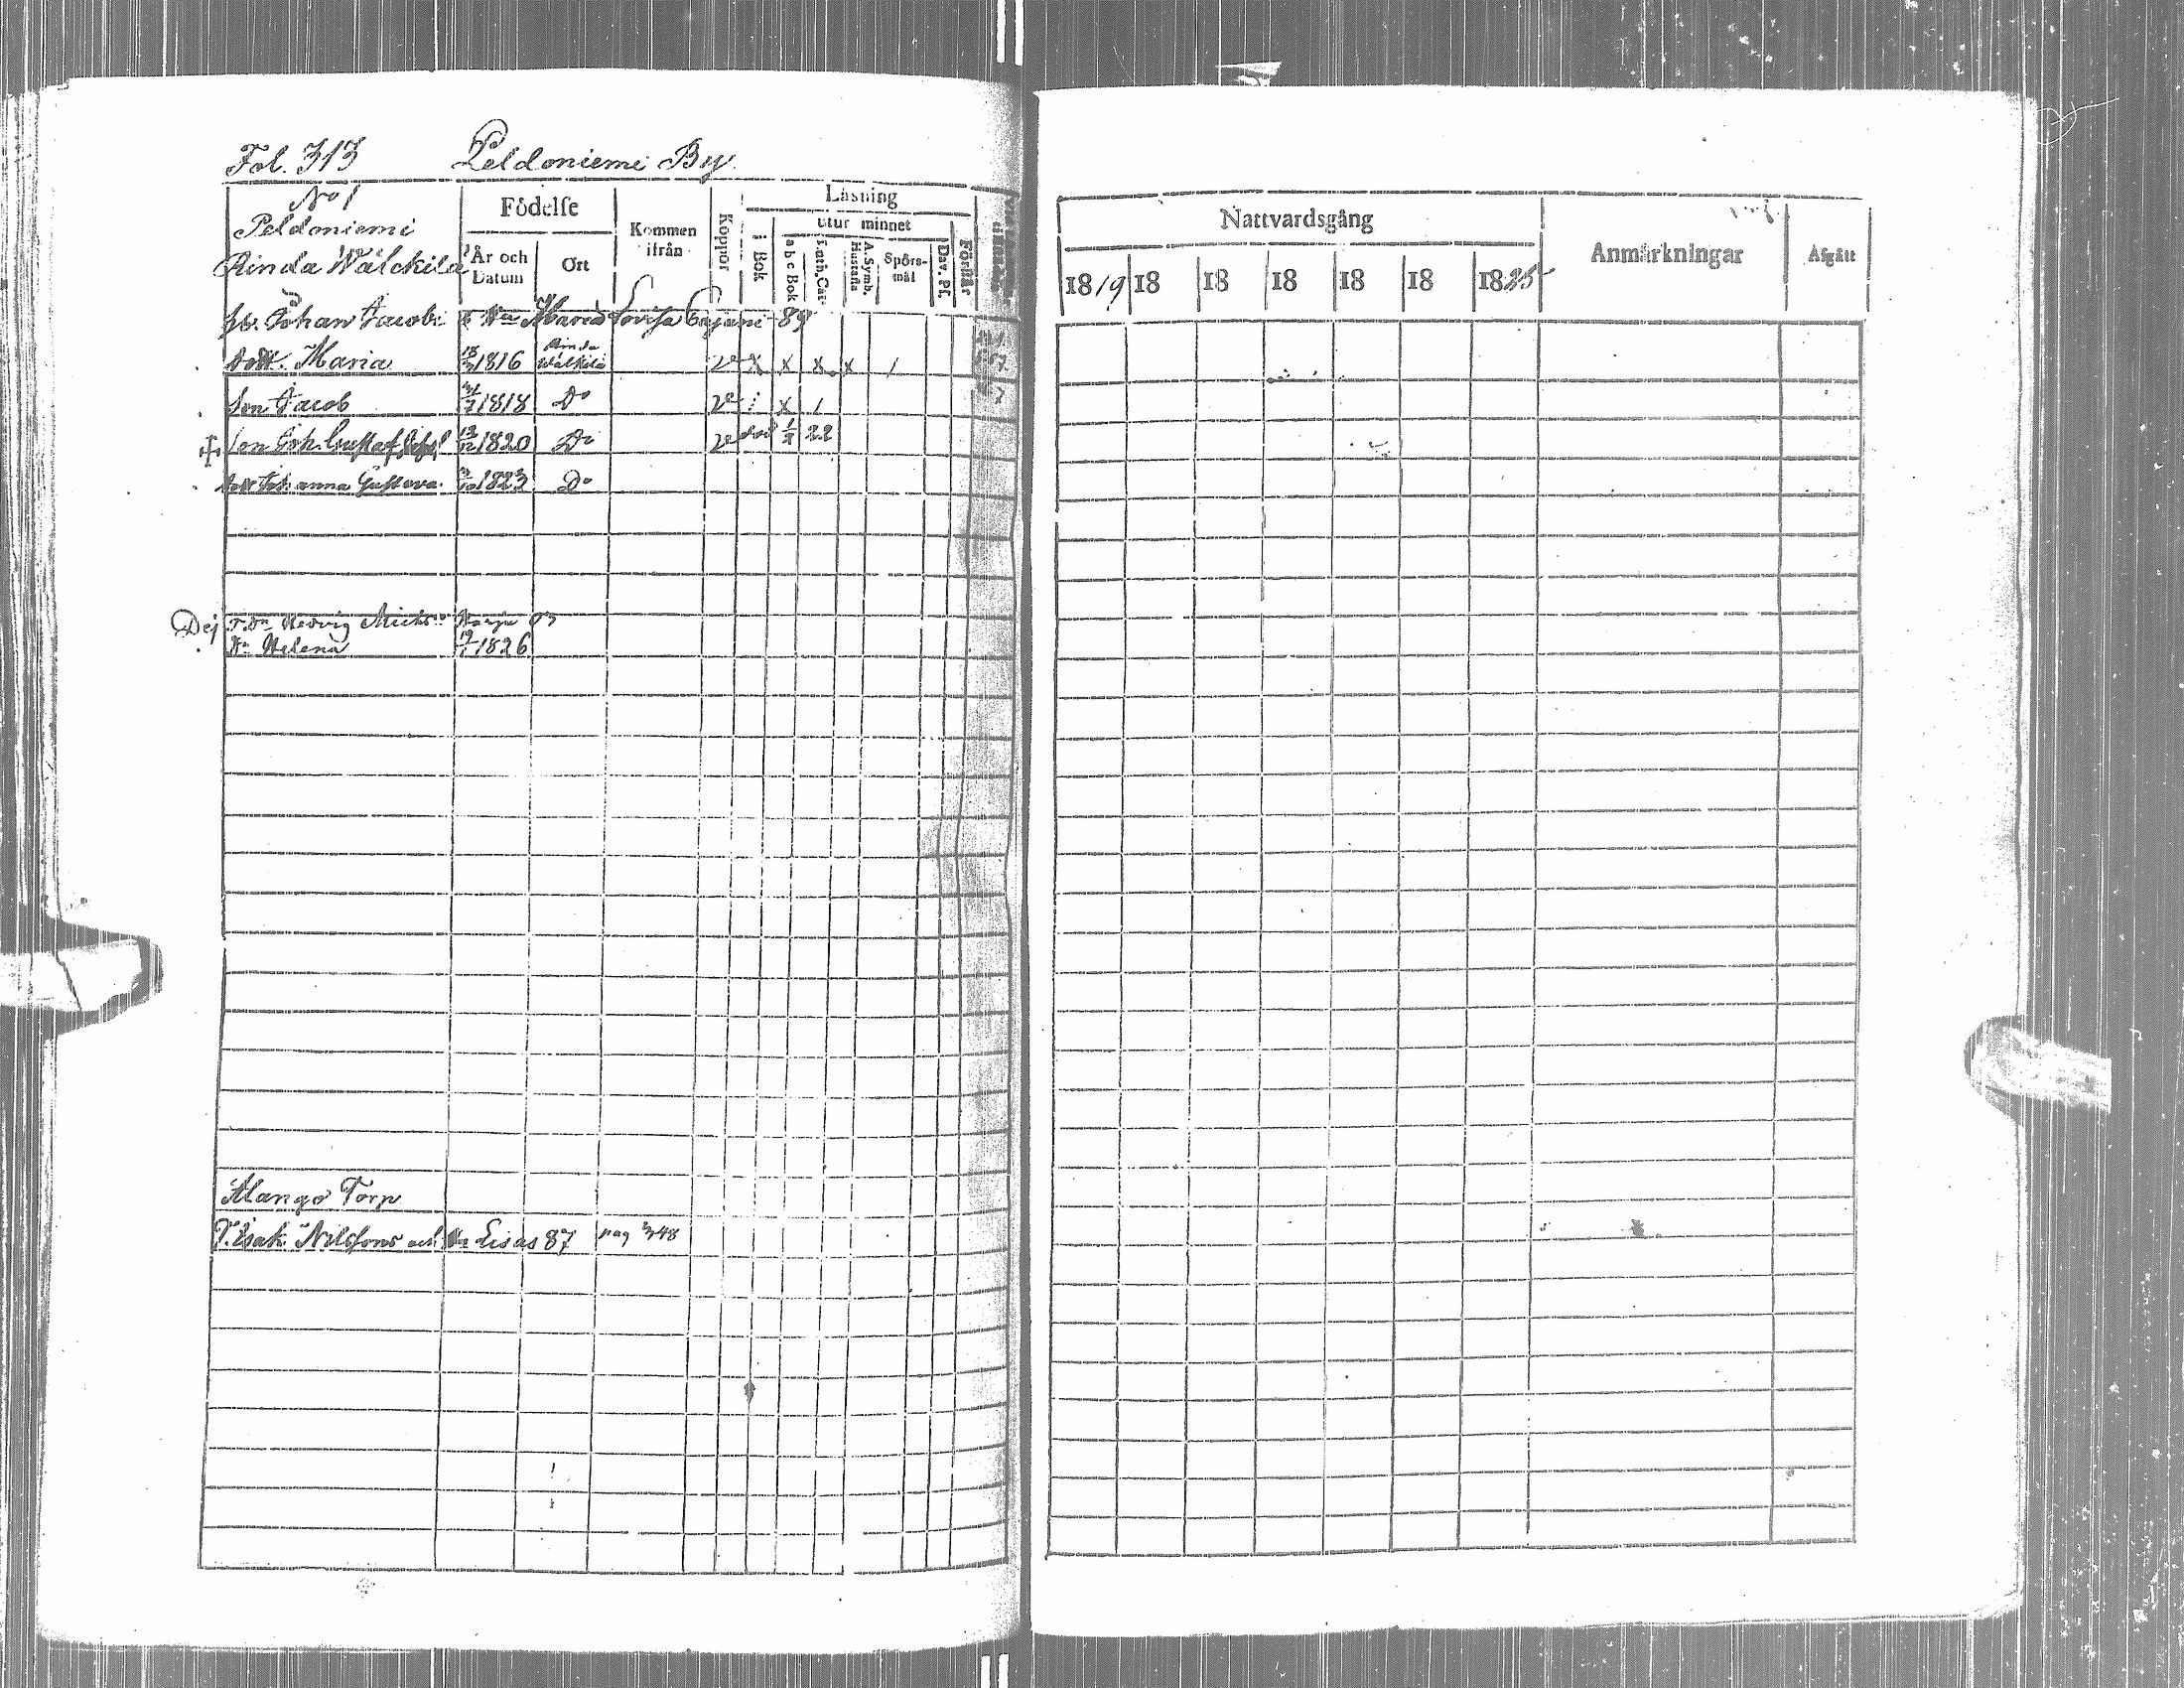 Fol. 313 Peldoniemi By
No 1
Peldoniemi
Rinda Wälckilä
Födelse
År och Datum
Ort
Kommen ifrån
Koppor
Läsning
i Bok
utur minnet
a b c Bok
Luth. Cat.
A. Symb. Hustafla
Spörs-mål
Dav. Ps.
Förstår
Johan Jacobs Maria Lovisa Cajani 89
dott. Maria 1816 Rinda Wälkilä x x x x /
Son Jacob 31/7 1818 Do x /
Son Joh. Gustaf 1820 Do död 22
dott Johanna Gustava 1823 Do
Dej Hedvig Michs 03
Helena 1826
Alango Torp
T. Isak Nilssons och Lisas 87 pag 348
Nattvardsgång
1819 18 18 18 18 18 1825
Anmärkningar
Afgått